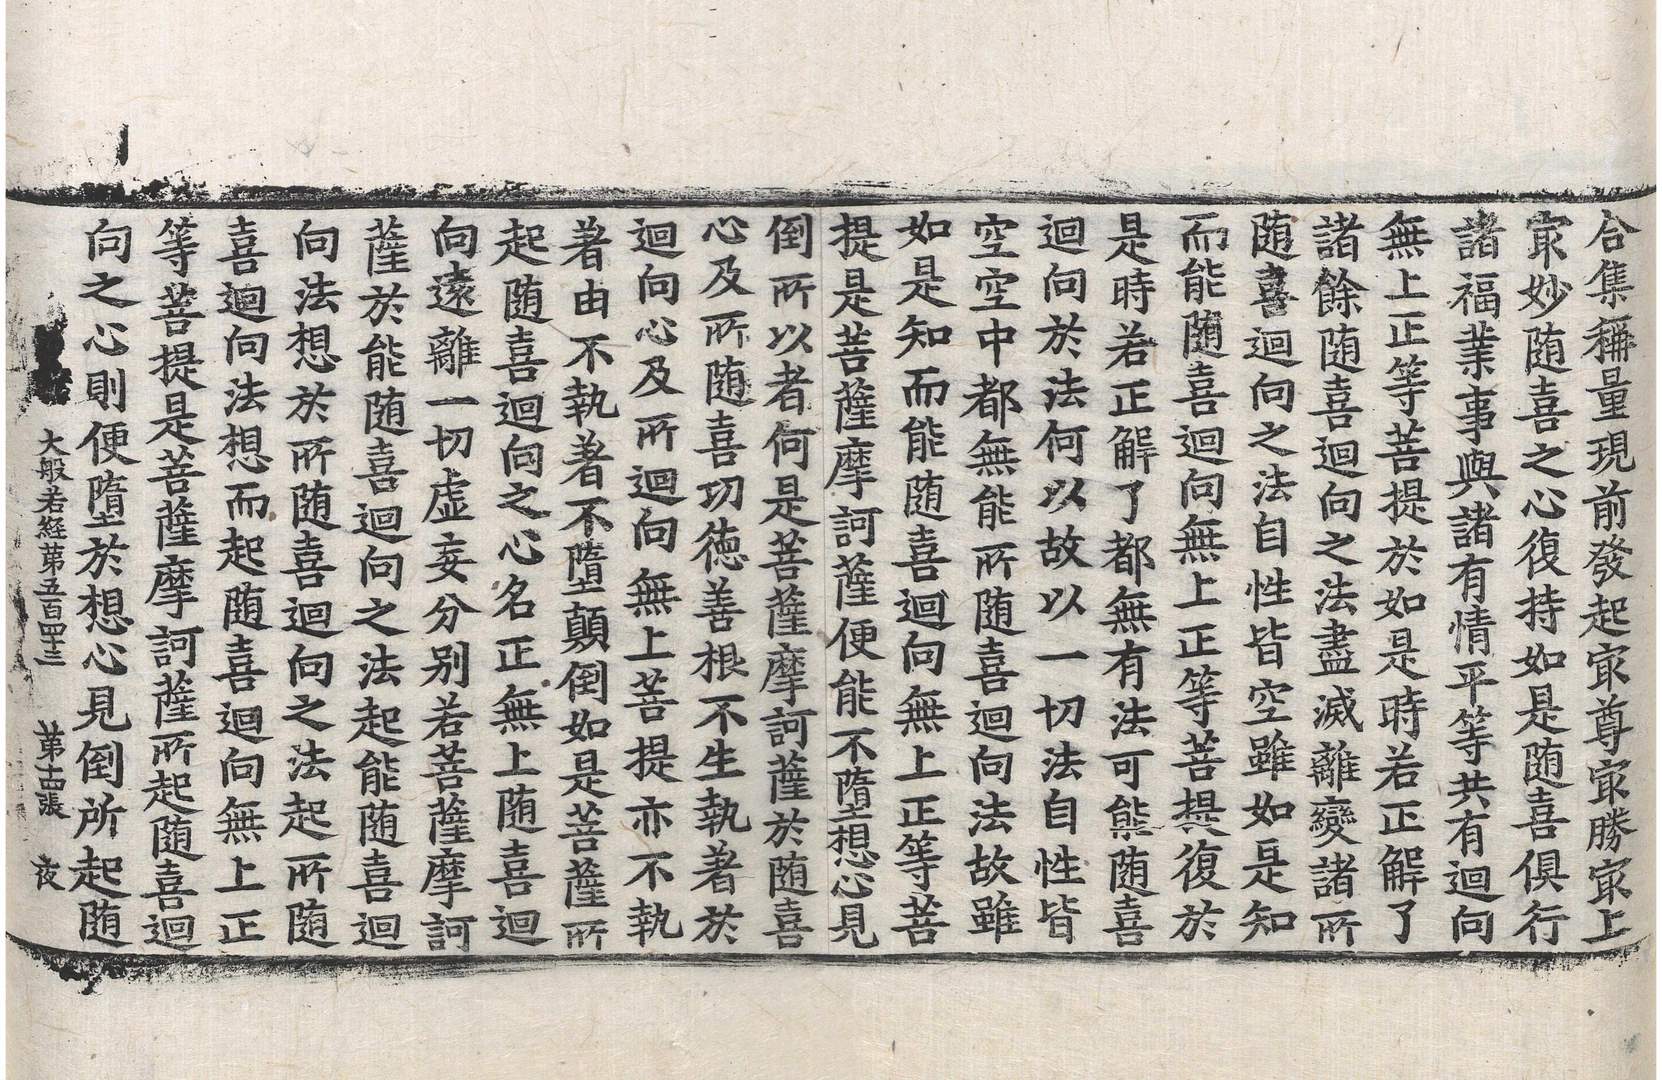 合集稱量現前發起㝡尊㝡勝㝡上
㝡妙随喜之心復持如是随喜俱行
諸福業事與諸有情平等共有迴向
無上正等菩提於如是時若正解了
諸餘随喜迴向之法盡滅離變諸所
随喜迴向之法自性皆空雖如是知
而能随喜迴向無上正等菩提復於
是時若正解了都無有法可能随喜
迴向於法何以故以一切法自性皆
空空中都無能所随喜迴向法故雖
如是知而能随喜迴向無上正等菩
提是菩薩摩訶薩便能不墮想心見
倒所以者何是菩薩摩訶薩於随喜
心及所随喜功徳善根不生執著於
迴向心及所迴向無上菩提亦不執
著由不執著不墮顛倒如是菩薩所
起随喜迴向之心名正無上随喜迴
向遠離一切虛妄分别若菩薩摩訶
薩於能随喜迴向之法起能随喜迴
向法想於所随喜迴向之法起所随
喜迴向法想而起随喜迴向無上正
等菩提是菩薩摩訶薩所起随喜迴
向之心則便墮於想心見倒所起随
大般若経第五百四十三 第十四張 夜